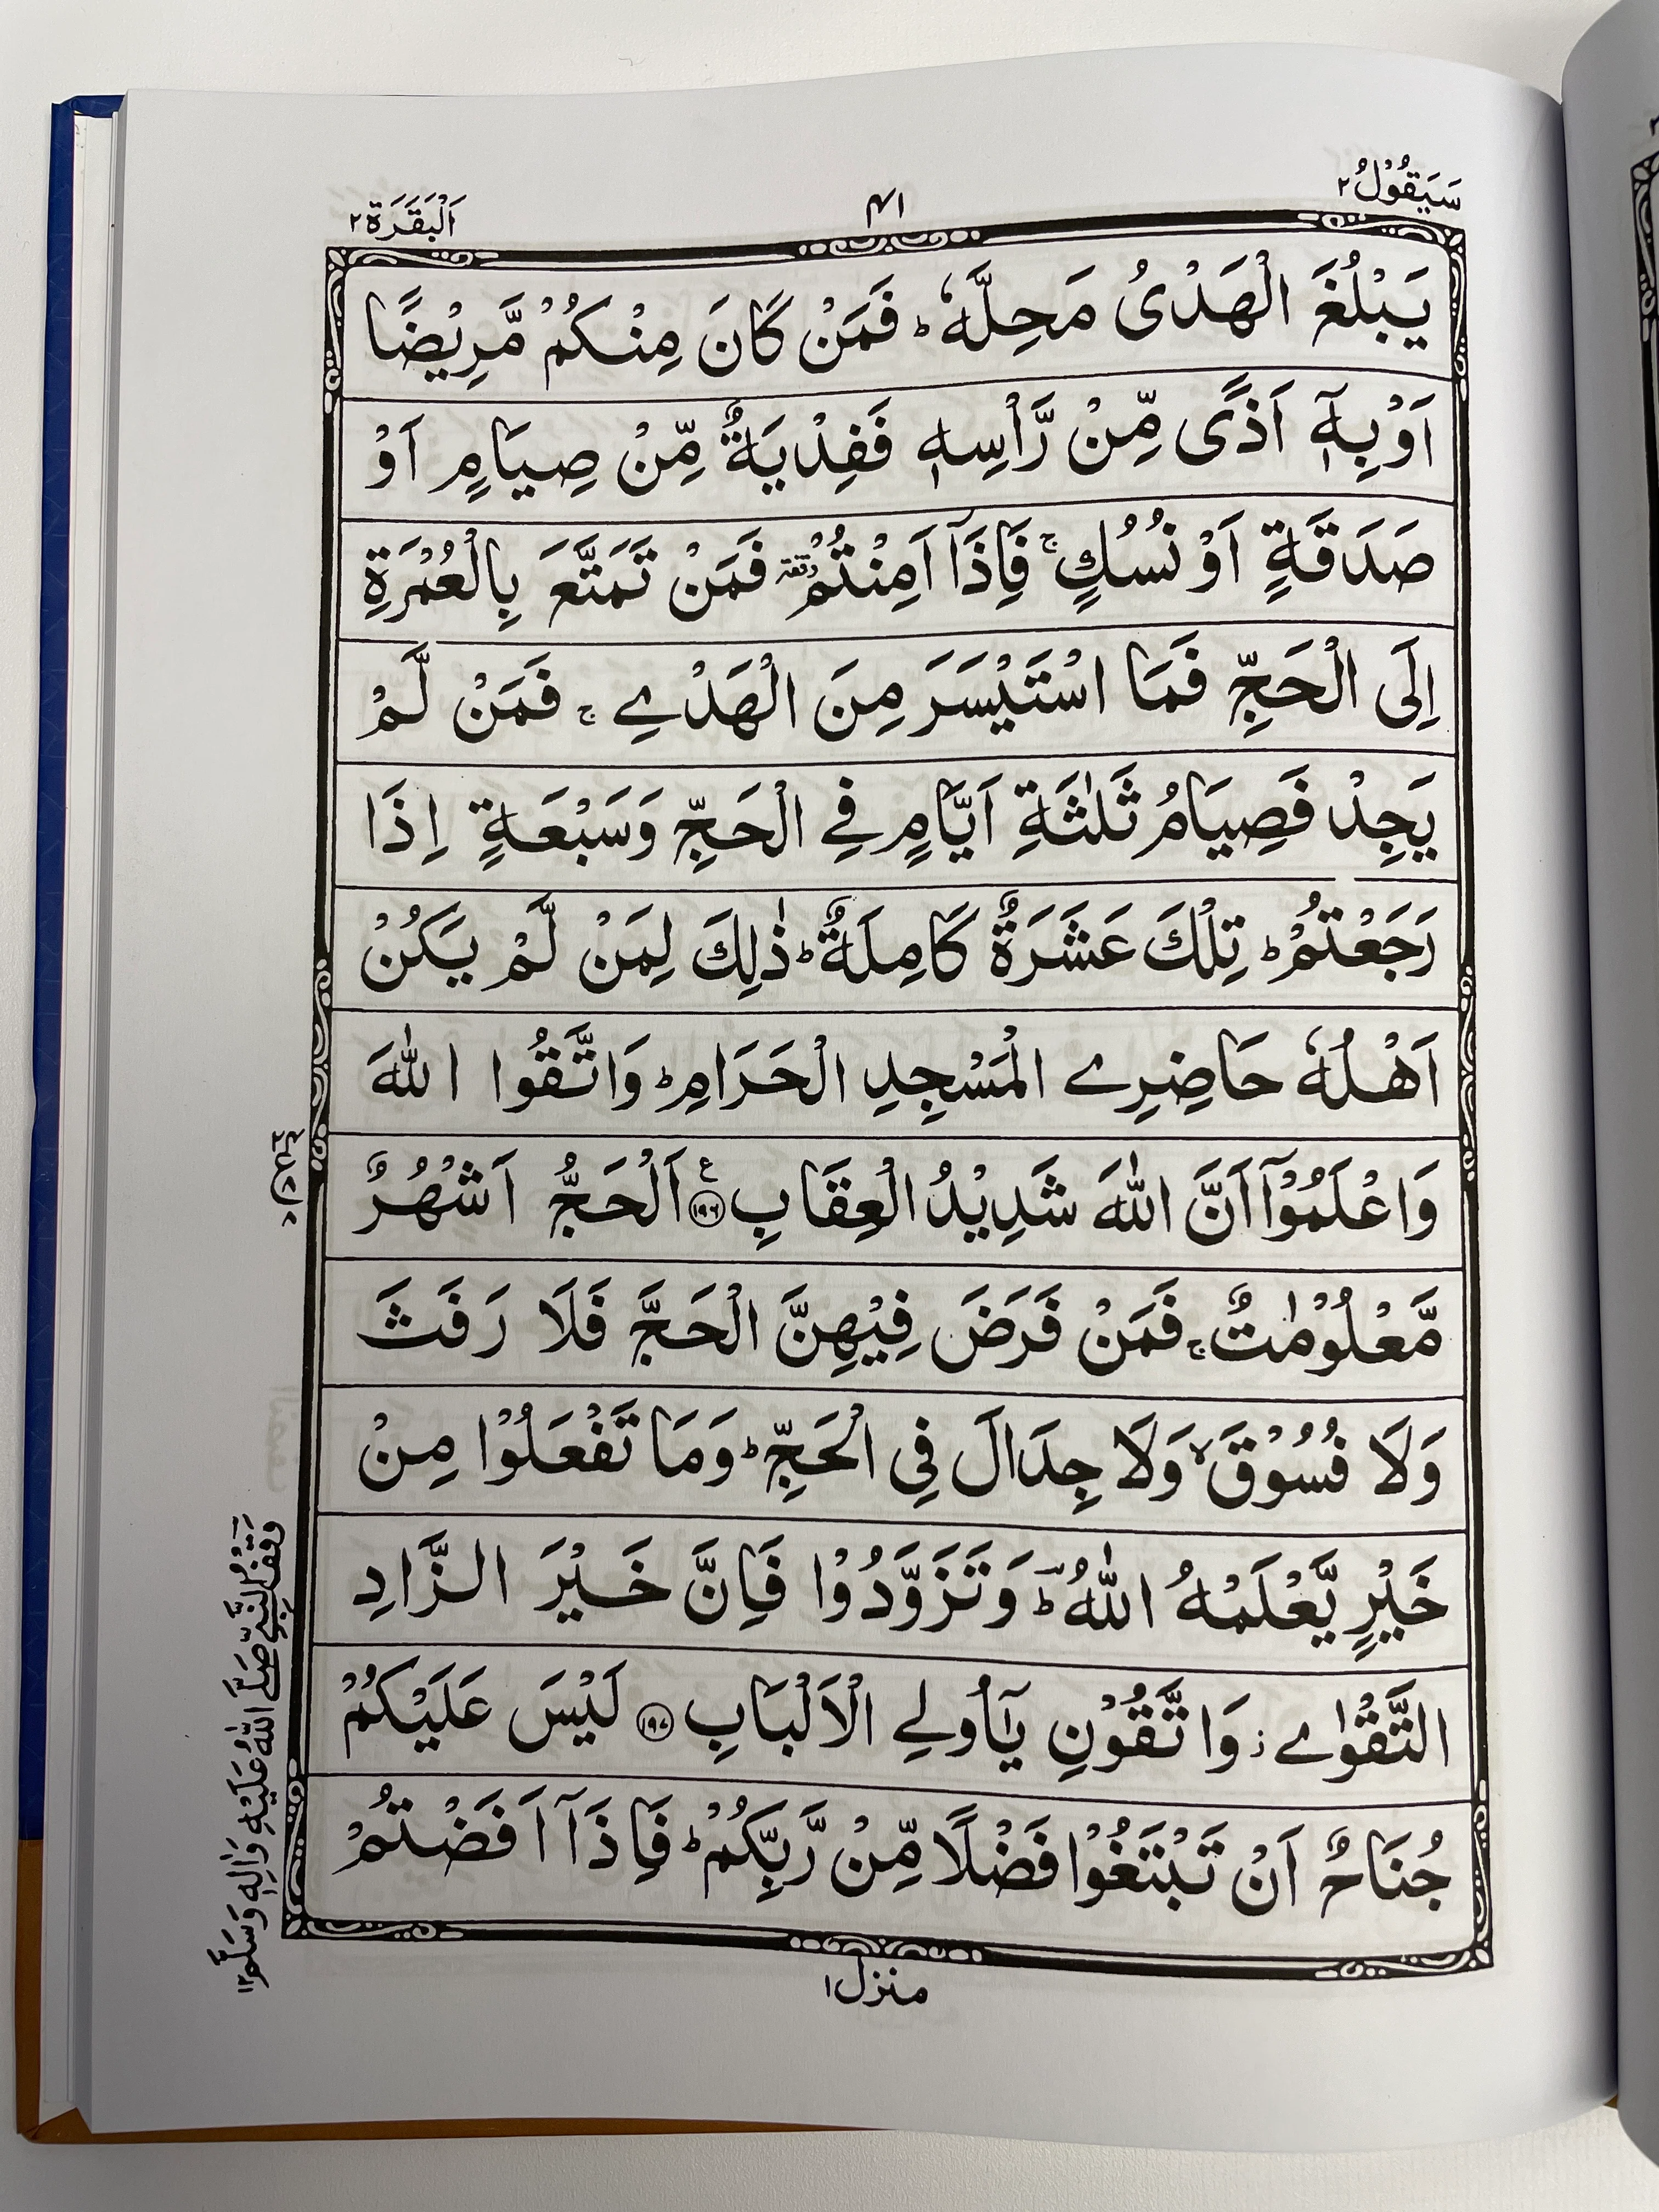 سَيَقُوْلُ ٢
٤١
اَلْبَقَرَة ٢
يَبْلُغَ الْهَدْىُ مَحِلَّهٗ ؕ فَمَنْ كَانَ مِنْكُمْ مَّرِيْضًا
اَوْ بِهٖۤ اَذًى مِّنْ رَّاْسِهٖ فَفِدْيَةٌ مِّنْ صِيَامٍ اَوْ
صَدَقَةٍ اَوْ نُسُكٍ ۚ فَاِذَاۤ اَمِنْتُمْ وقفة فَمَنْ تَمَتَّعَ بِالْعُمْرَةِ
اِلَى الْحَجِّ فَمَا اسْتَيْسَرَ مِنَ الْهَدْےِ ۚ فَمَنْ لَّمْ
يَجِدْ فَصِيَامُ ثَلٰثَةِ اَيَّامٍ فِے الْحَجِّ وَسَبْعَةٍ اِذَا
رَجَعْتُمْ ؕ تِلْكَ عَشَرَةٌ كَامِلَةٌ ؕ ذٰلِكَ لِمَنْ لَّمْ يَكُنْ
اَهْلُهٗ حَاضِرِے الْمَسْجِدِ الْحَرَامِ ؕ وَاتَّقُوا اللّٰهَ
وَاعْلَمُوْۤا اَنَّ اللّٰهَ شَدِيْدُ الْعِقَابِ ۧ ﴿١٩٦﴾ اَلْحَجُّ اَشْهُرٌ
مَّعْلُوْمٰتٌ ۚ فَمَنْ فَرَضَ فِيْهِنَّ الْحَجَّ فَلَا رَفَثَ
وَلَا فُسُوْقَ ۙ وَلَا جِدَالَ فِى الْحَجِّ ؕ وَمَا تَفْعَلُوْا مِنْ
خَيْرٍ يَّعْلَمْهُ اللّٰهُ ؔؕ وَتَزَوَّدُوْا فَاِنَّ خَيْرَ الزَّادِ
التَّقْوٰے ؗ وَاتَّقُوْنِ يٰۤاُولِے الْاَلْبَابِ ﴿١٩٧﴾ لَيْسَ عَلَيْكُمْ
جُنَاحٌ اَنْ تَبْتَغُوْا فَضْلًا مِّنْ رَّبِّكُمْ ؕ فَاِذَاۤ اَفَضْتُمْ
منزل ١
وَقْفُ النَّبِيِّ صَلَّى اللّٰهُ عَلَيْهِ وَاٰلِهٖ وَسَلَّم ١٢